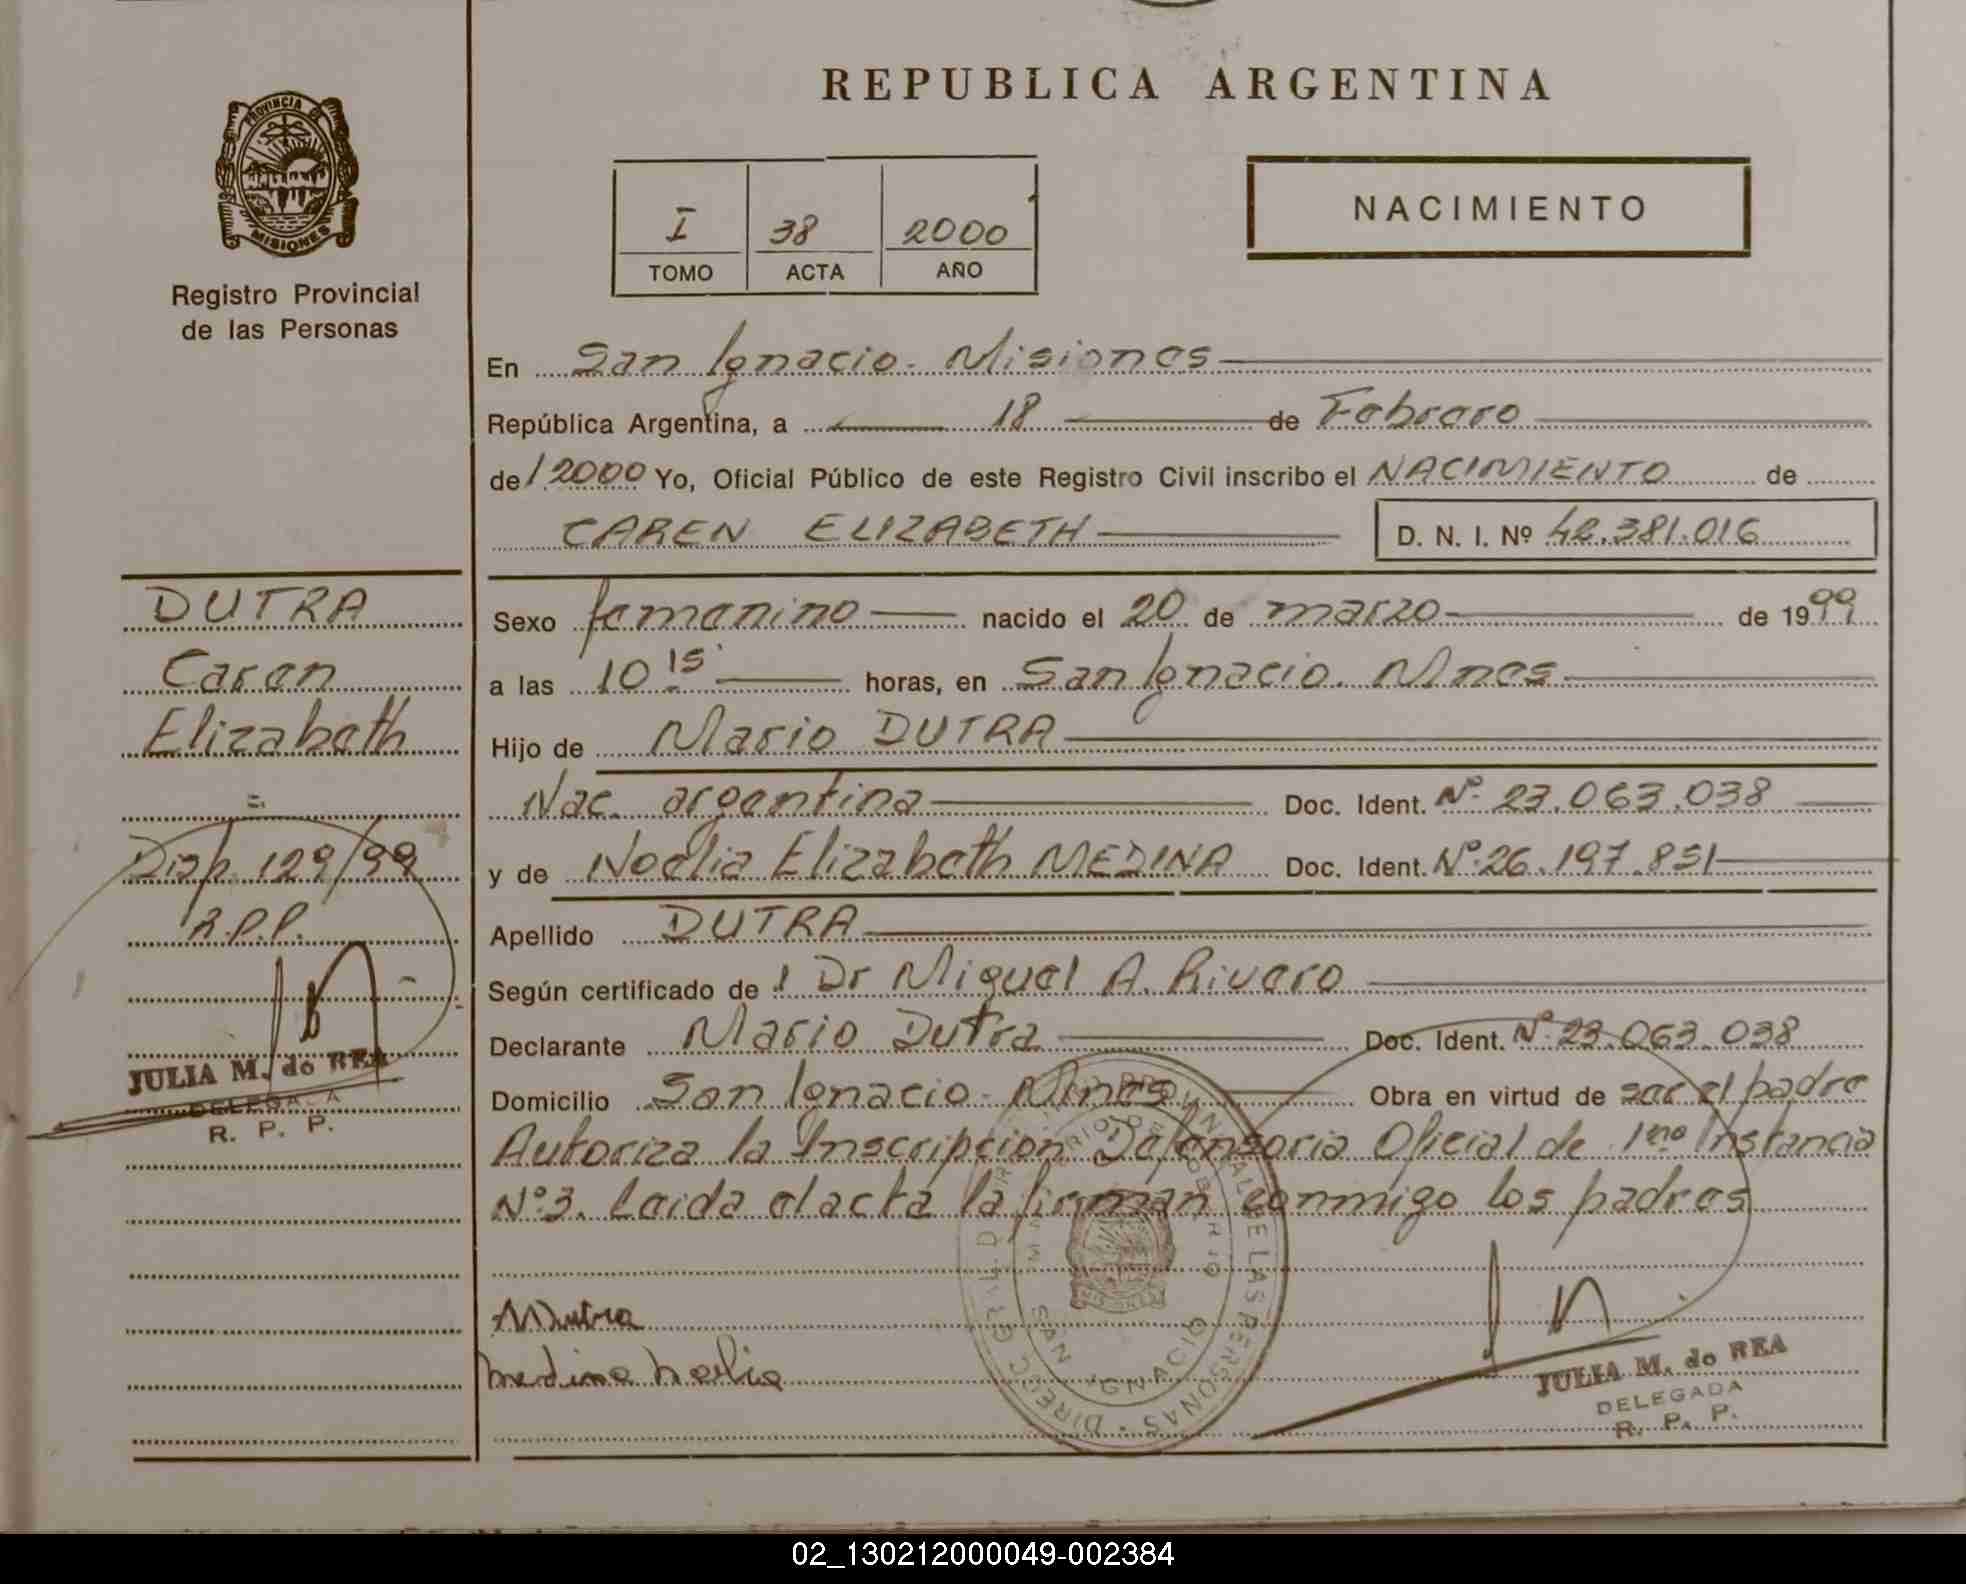 REPUBLICA ARGENTINA
PROVINCIA DE
MISIONES
Registro Provincial
de las Personas
I 38 2000
TOMO ACTA AÑO
NACIMIENTO
En San Ignacio - Misiones
República Argentina, a 18 de Febrero
de 2000 Yo, Oficial Público de este Registro Civil inscribo el NACIMIENTO de
CAREN ELIZABETH D. N. I. Nº 42.381.016
Sexo femenino nacido el 20 de marzo de 1999
a las 10 15 horas, en San Ignacio. Mnes
Hijo de Mario DUTRA
Nac. argentina Doc. Ident. Nº 23.063.038
y de Noelia Elizabeth MEDINA Doc. Ident. Nº 26.197.851
Apellido DUTRA
Según certificado de Dr Miguel A. Rivero
Declarante Mario Dutra Doc. Ident. Nº 23.063.038
Domicilio San Ignacio - Mnes Obra en virtud de ser el padre
Autoriza la Inscripción Defensoria Oficial de 1ra Instancia
Nº3. Leida el acta la firman conmigo los padres
MDutra
Medina Noelia
JULIA M. do REA
DELEGADA
R. P. P.
DUTRA
Caren
Elizabeth
Disp. 129/99
R.P.P.
JULIA M. do REA
DELEGADA
R. P. P.
SAN IGNACIO
02_130212000049-002384